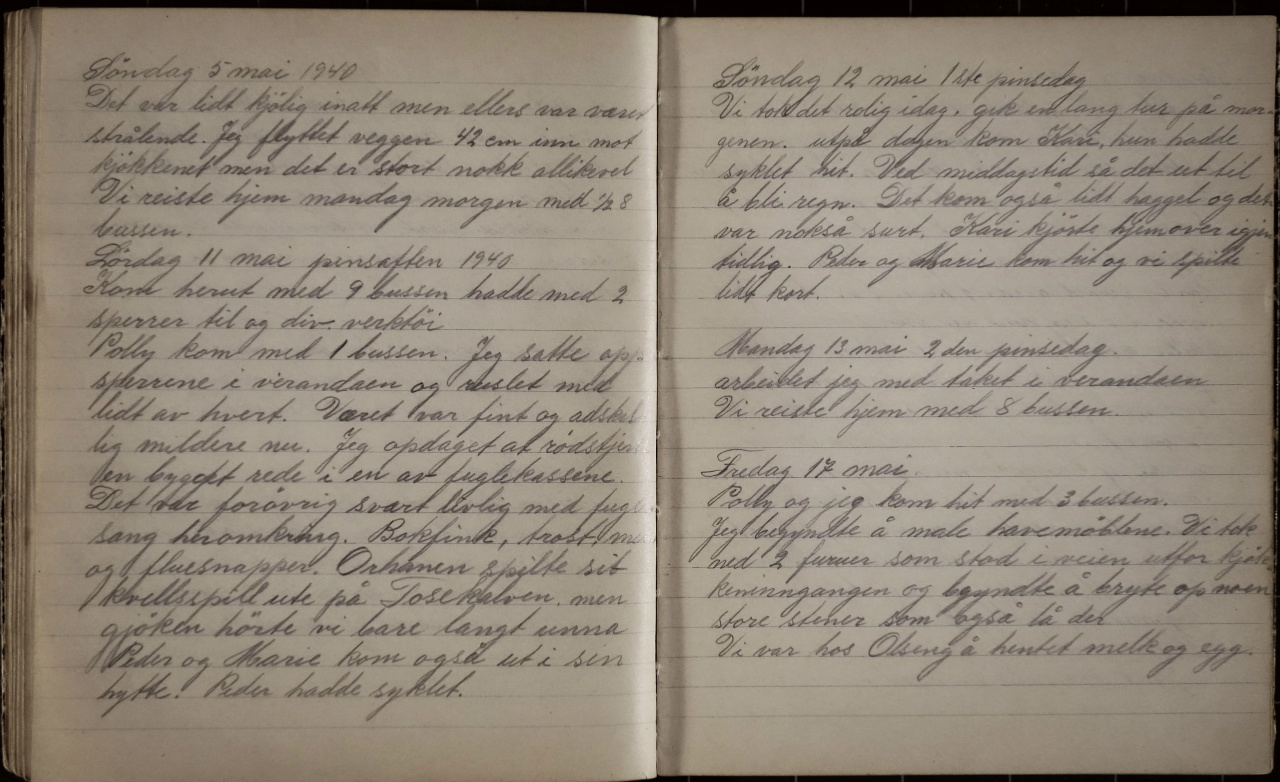 Söndag 5 mai 1940
Det var lidt kjölig inatt men ellers var været
strålende. Jeg flyttet veggen 42 cm inn mot
kjökkenet men det er stort nokk allikevel
Vi reiste hjem mandag morgen med ½ 8
bussen.
Lördag 11 mai pinsaften 1940
Kom herut med 9 bussen hadde med 2
sperrer til og div. verktöi
Polly kom med 1 bussen. Jeg satte opp
sperrene i verandaen og ruslet med
lidt av hvert. Været var fint og adskil
lig mildere nu. Jeg opdaget at rödstjer
en bygget rede i en av fuglekassene.
Det var forövrig svært livlig med fugle
sang heromkring. Bokfink, trost,
og fluesnapper. Orhanen spilte sit
kvellsspill ute på Tosekalven. men
gjöken hörte vi bare langt unna
Peder og Marie kom også ut i sin
hytte. Peder hadde syklet.
Söndag 12 mai 1ste pinsedag
Vi tok det rolig idag. gik en lang tur på mor-
genen. utpå dagen kom Kari, hun hadde
syklet hit. Ved middagstid så det ut til
å bli regn. Det kom også lidt haggel og det
var nokså surt. Kari kjörte hjemover igjen
tidlig. Peder og Marie kom hit og vi spilte
lidt kort.
Mandag 13 mai 2den pinsedag.
arbeidet jeg med taket i verandaen
Vi reiste hjem med 8 bussen.
Fredag 17 mai.
Polly og jeg kom hit med 3 bussen.
Jeg begyndte å male havemöblene. Vi tok
ned 2 furuer som stod i veien utfor kjök-
keninngangen og bgyndte å bryte op noen
store stener som også lå der
Vi var hos Olseng å hentet melk og egg.